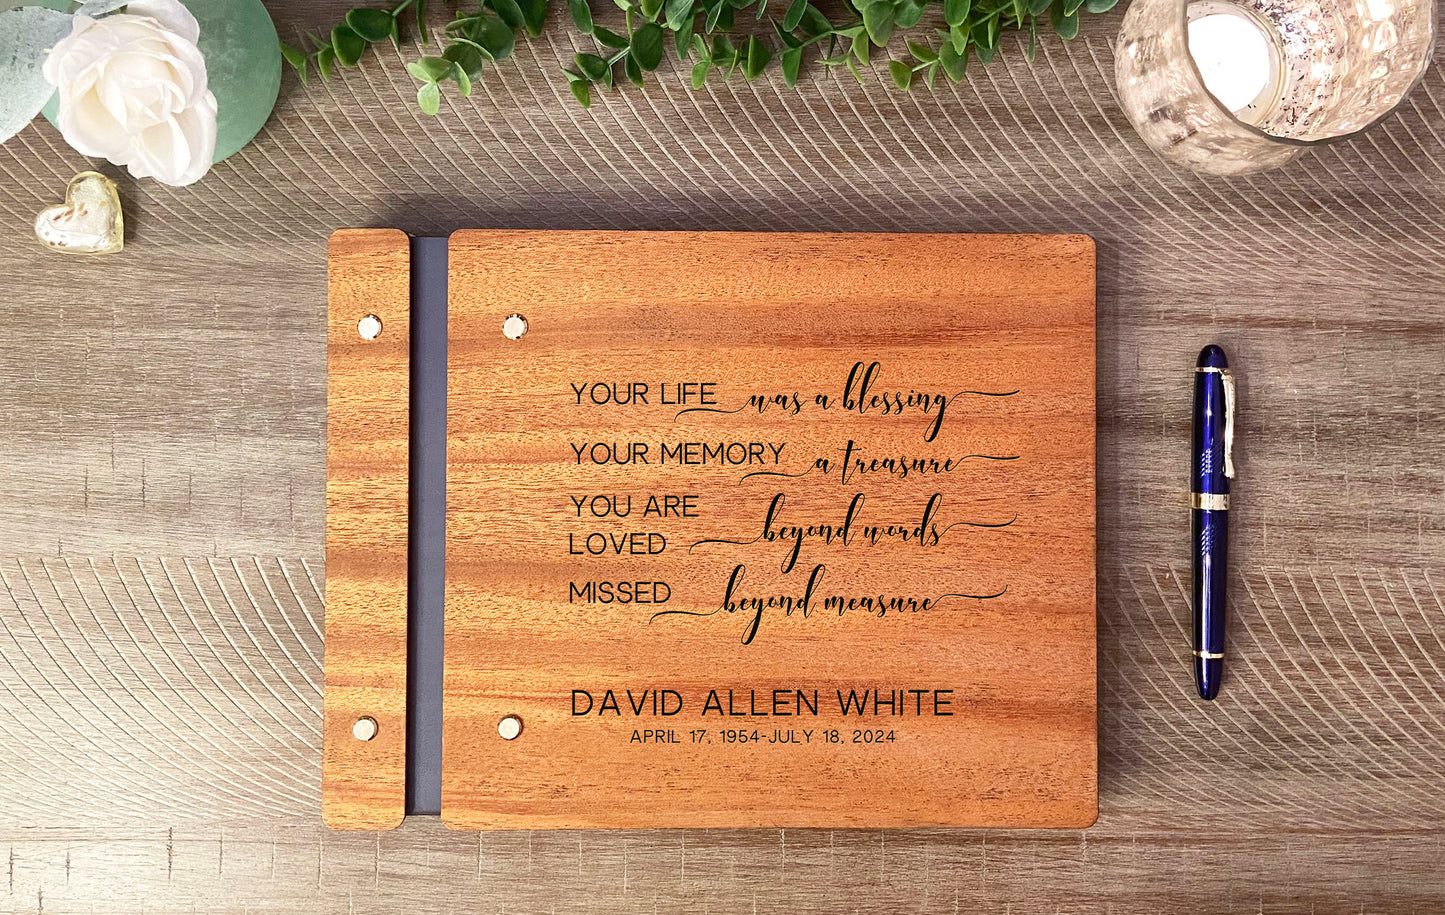 YOUR LIFE was a blessing
YOUR MEMORY a treasure
YOU ARE
LOVED beyond words
MISSED beyond measure
DAVID ALLEN WHITE
APRIL 17, 1954-JULY 18, 2024